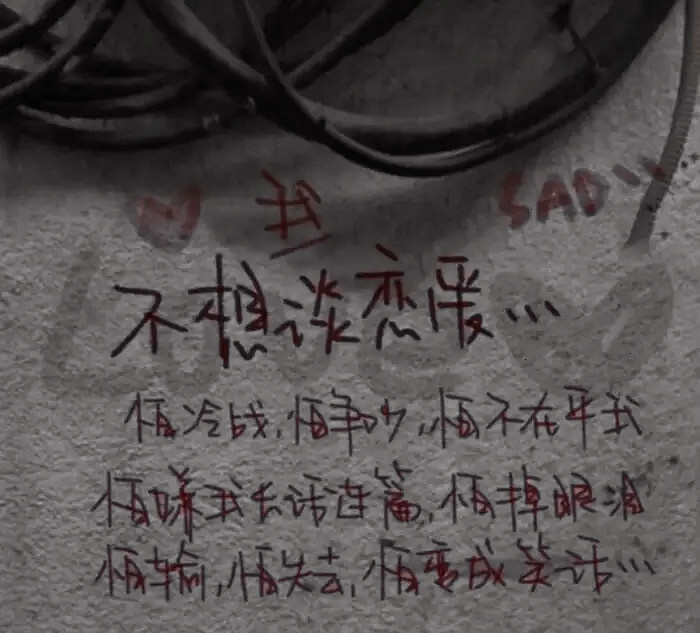 我 SAD
不想谈恋爱…
怕冷战,怕争吵,怕不在乎我
怕嫌我长话连篇,怕掉眼泪
怕输,怕失去,怕变成笑话…